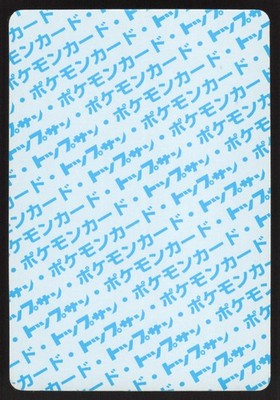 トップサン・ポケモンカード
トップサン・ポケモンカード・トップサン
トップサン・ポケモンカード・トップサン
カード・トップサン・ポケモンカード
カード・トップサン・ポケモンカード
カード・トップサン・ポケモンカード
カード・トップサン・ポケモンカード
モンカード・トップサン・ポケモンカード
ポケモンカード・トップサン・ポケモンカード
ポケモンカード・トップサン
ポケモンカード・トップサン